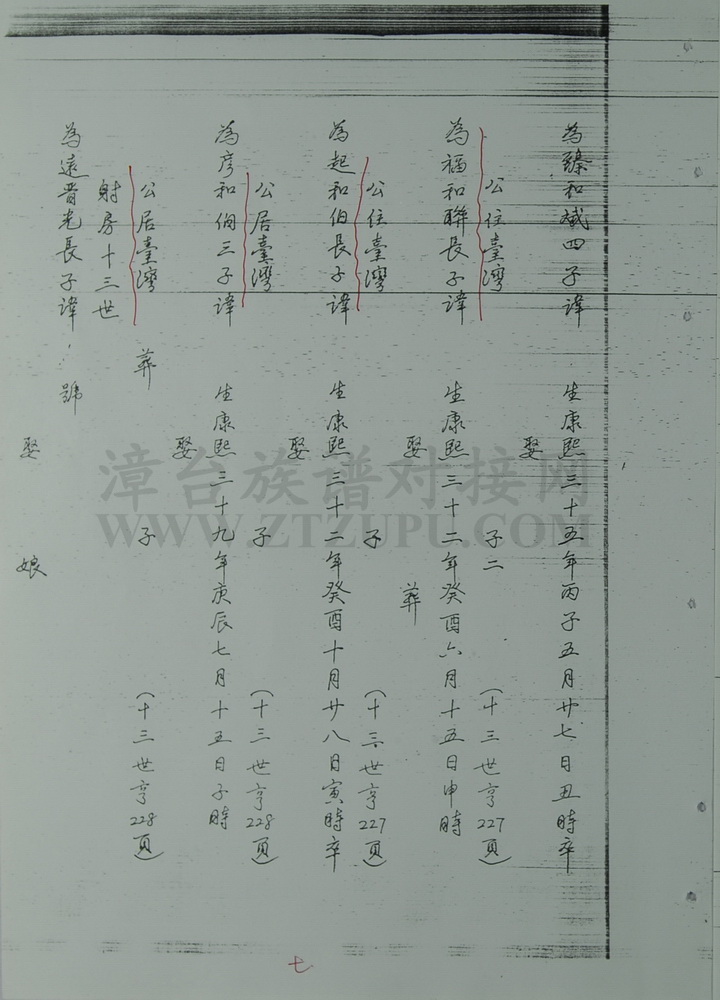 為臻和斌四子諱 生康熙三十五年丙子五月廿七日丑時卒
娶
公住臺灣 子二 (十三世亨227頁)
為福和聯長子諱 生康熙三十二年癸酉六月十五日申時
娶 葬
公住臺灣 子 (十三世亨227頁)
為起和伯長子諱 生康熙三十二年癸酉十月廿八日寅時卒
娶
公居臺灣 子 (十三世亨228頁)
為彦和侗三子諱 生康熙三十九年庚辰七月十五日子時
娶
公居臺灣 葬 子 (十三世亨228頁)
射房十三世
為遠晋光長子諱 號
娶 娘
七
漳台族谱对接网
WWW.ZTZUPU.COM